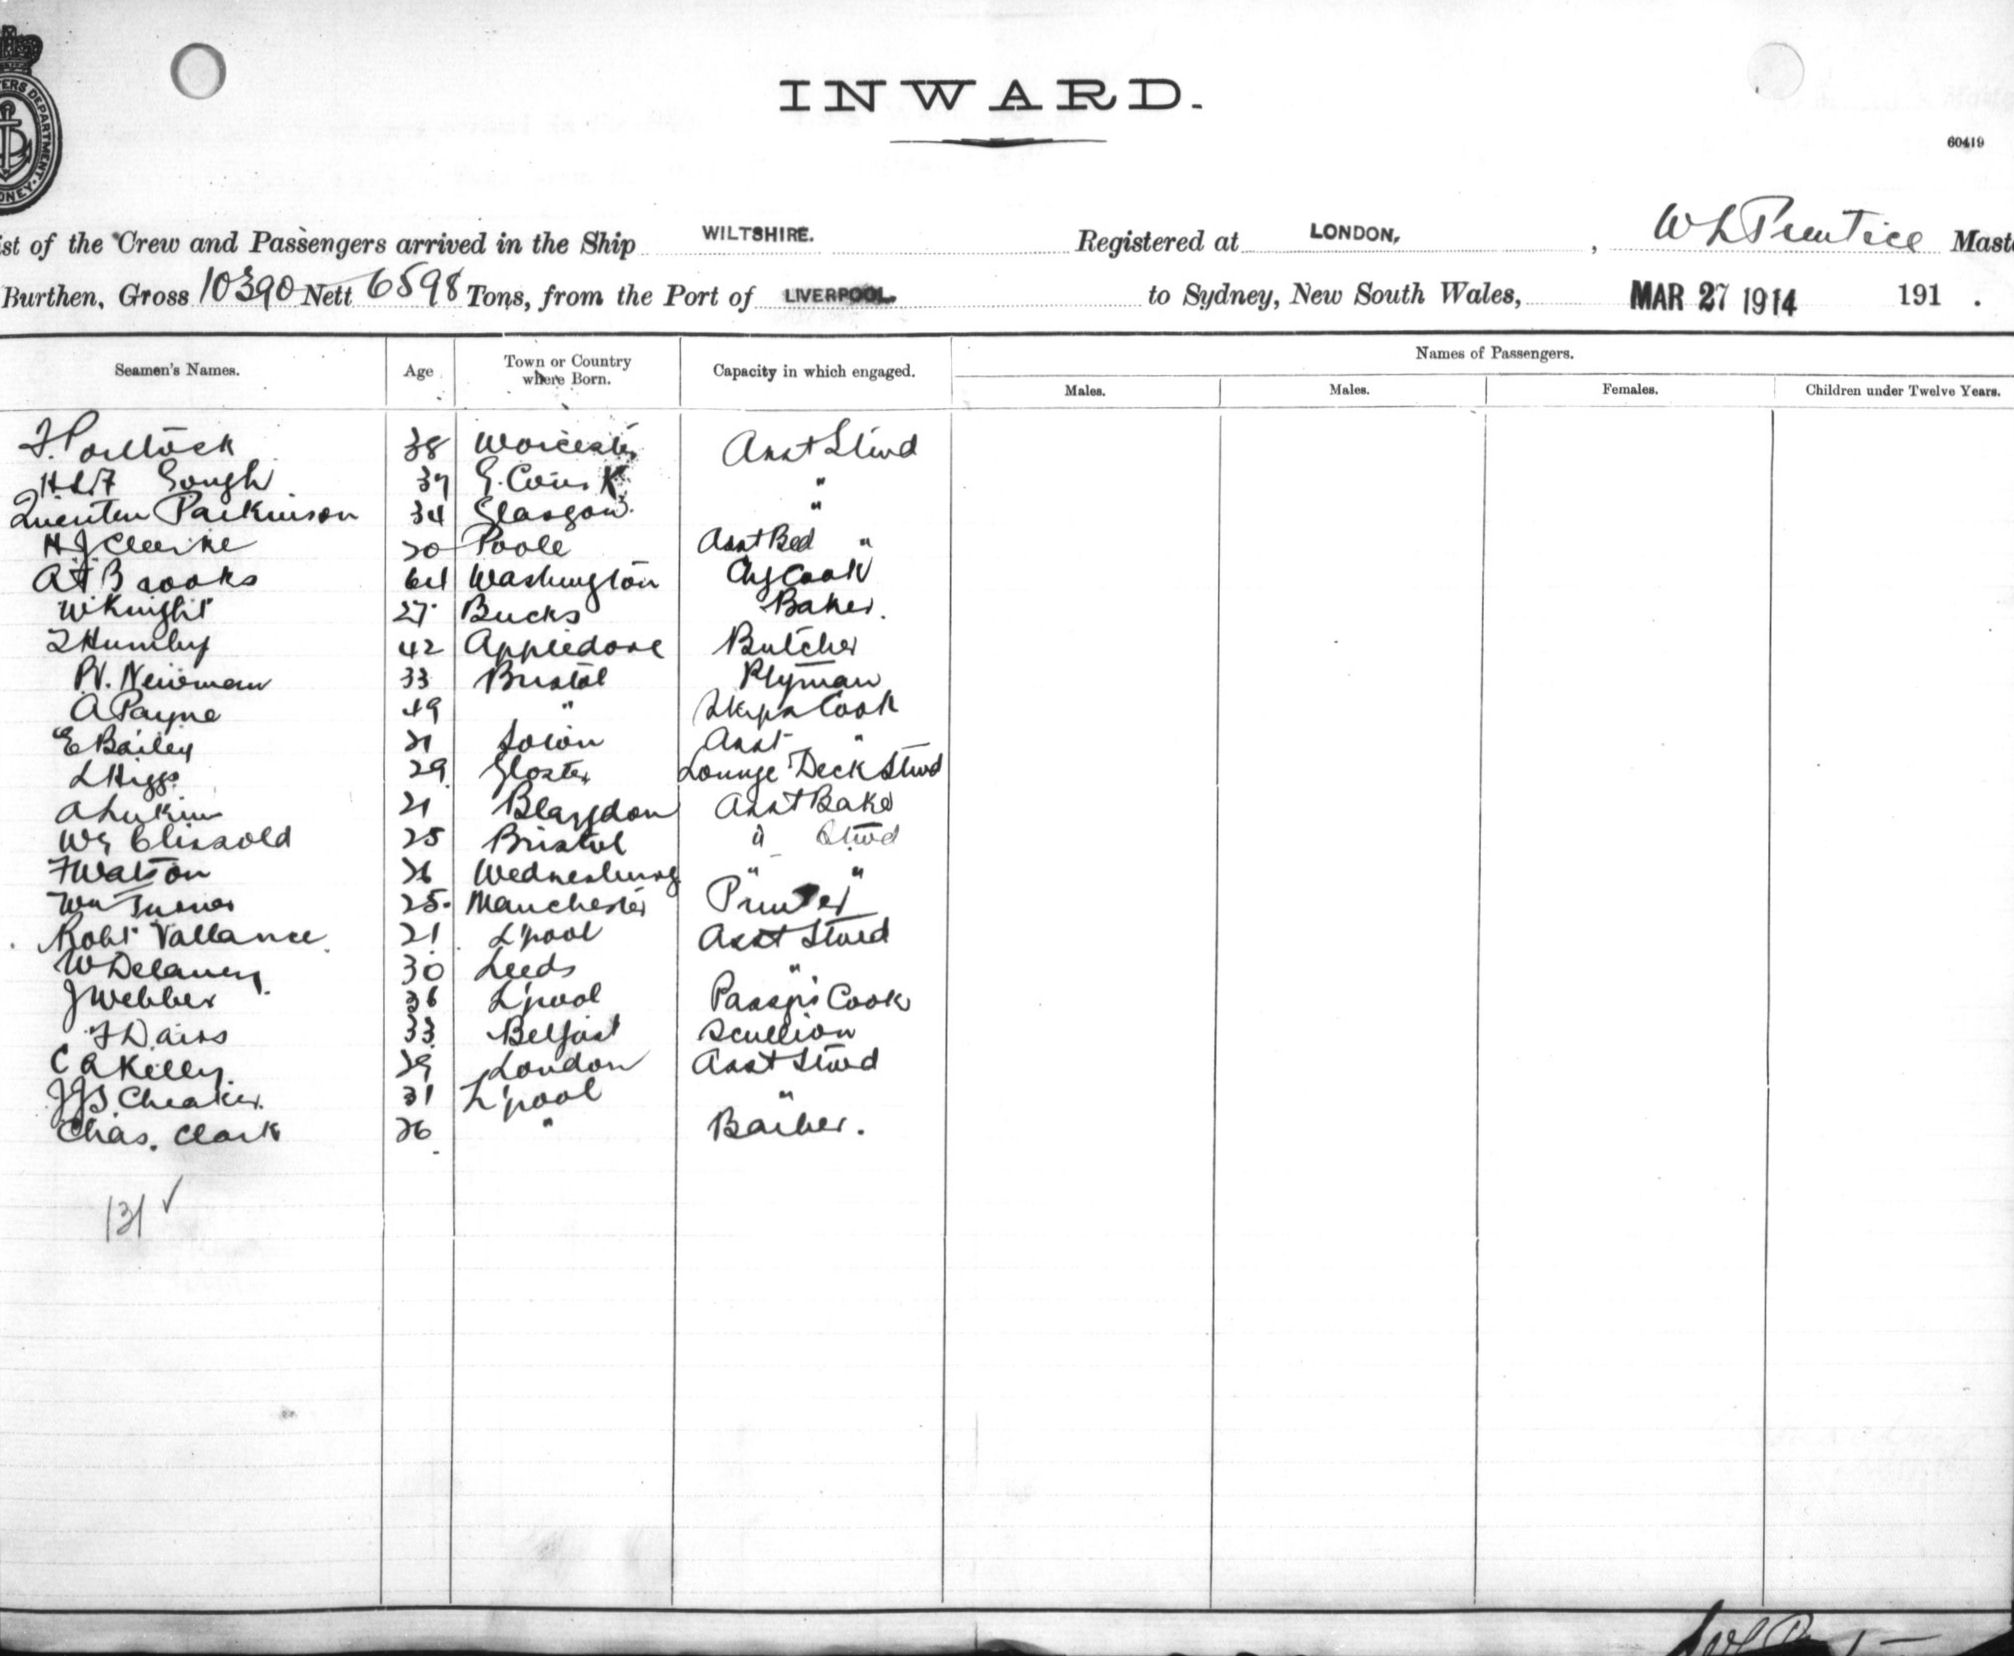 INWARD.
60419
ist of the Crew and Passengers arrived in the Ship WILTSHIRE. Registered at LONDON, , W L Prentice Maste
Burthen, Gross 10390 Nett 6598 Tons, from the Port of LIVERPOOL. to Sydney, New South Wales, MAR 27 1914 191 .
Seamen's Names. Age Town or Country where Born. Capacity in which engaged. Names of Passengers.
Males. Males. Females. Children under Twelve Years.
38 Worcester Asst Stwd
Gough 37 "
Quenten Parkinson 34 Glasgow "
H J Clarke 20 Poole Asst Bed "
A Brooks 64 Washington Cook
W Knight 27 Bucks Baker.
Humby 42 Appledore Butcher
Newman 33 Bristol Plyman
A Payne 49 " Cook
E Bailey 21 Soton Asst "
L Higgs 29 Gloster Lounge Deck Stwd
A Lukins 21 Blagdon Asst Baker
Clissold 25 Bristol " Stwd
F Watson 26 Wednesbury " "
Wm Turner 25 Manchester Printer
Robt Vallance 21 L'pool Asst Stwd
W Delaney 30 Leeds "
J Webber 36 L'pool Passgrs Cook
33 Belfast Scullion
C A Kelly 29 London Asst Stwd
31 L'pool "
Chas. Clark 26 " Barber.
131 ✓